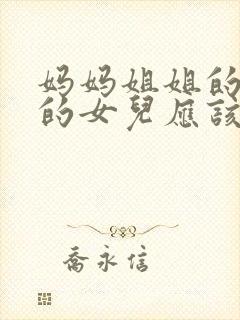 妈妈姐姐的
的女兒應該
喬永信